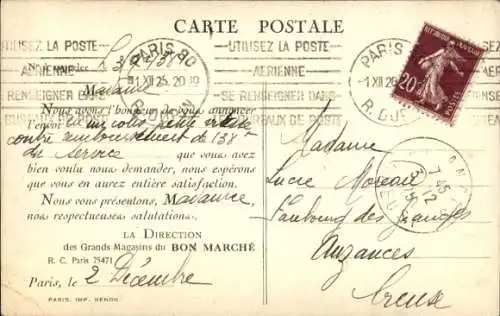 CARTE POSTALE
UTILISEZ LA POSTE
AÉRIENNE
SE RENSEIGNER DANS
BUREAUX DE POSTE
PARIS 90
1 XII 25
UTILISEZ LA POSTE
AÉRIENNE
SE RENSEIGNER DANS
BUREAUX DE POSTE
PARIS
1 XII 25
RÉPUBLIQUE FRANÇAISE
20
POSTES
Madame
Nous avons l'honneur de vous annoncer
l'envoi d'un colis petite vitesse
contre remboursement de 138
du service que vous avez
bien voulu nous demander, nous espérons
que vous en aurez entière satisfaction.
Nous vous présentons, Madame,
nos respectueuses salutations.
LA DIRECTION
des Grands Magasins du BON MARCHÉ
R. C. Paris 75471
Paris, le 2 Décembre
PARIS, IMP.
Madame
Lucie Moreau
Faubourg des
Auzances
Creuse